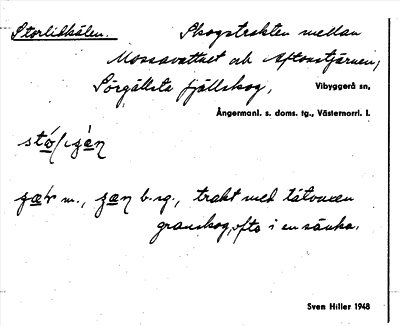 Storlidkälen. Skogstrakten mellan
Mossavattnet och Aftonstjärnen,
Sörgällsta fjällskog, Vibyggerå sn,
Ångermanl. s. doms. tg., Västernorrl. l.
m., b. sg., trakt med tätvuxen
granskog, ofta i en sänka.
Sven Hiller 1948